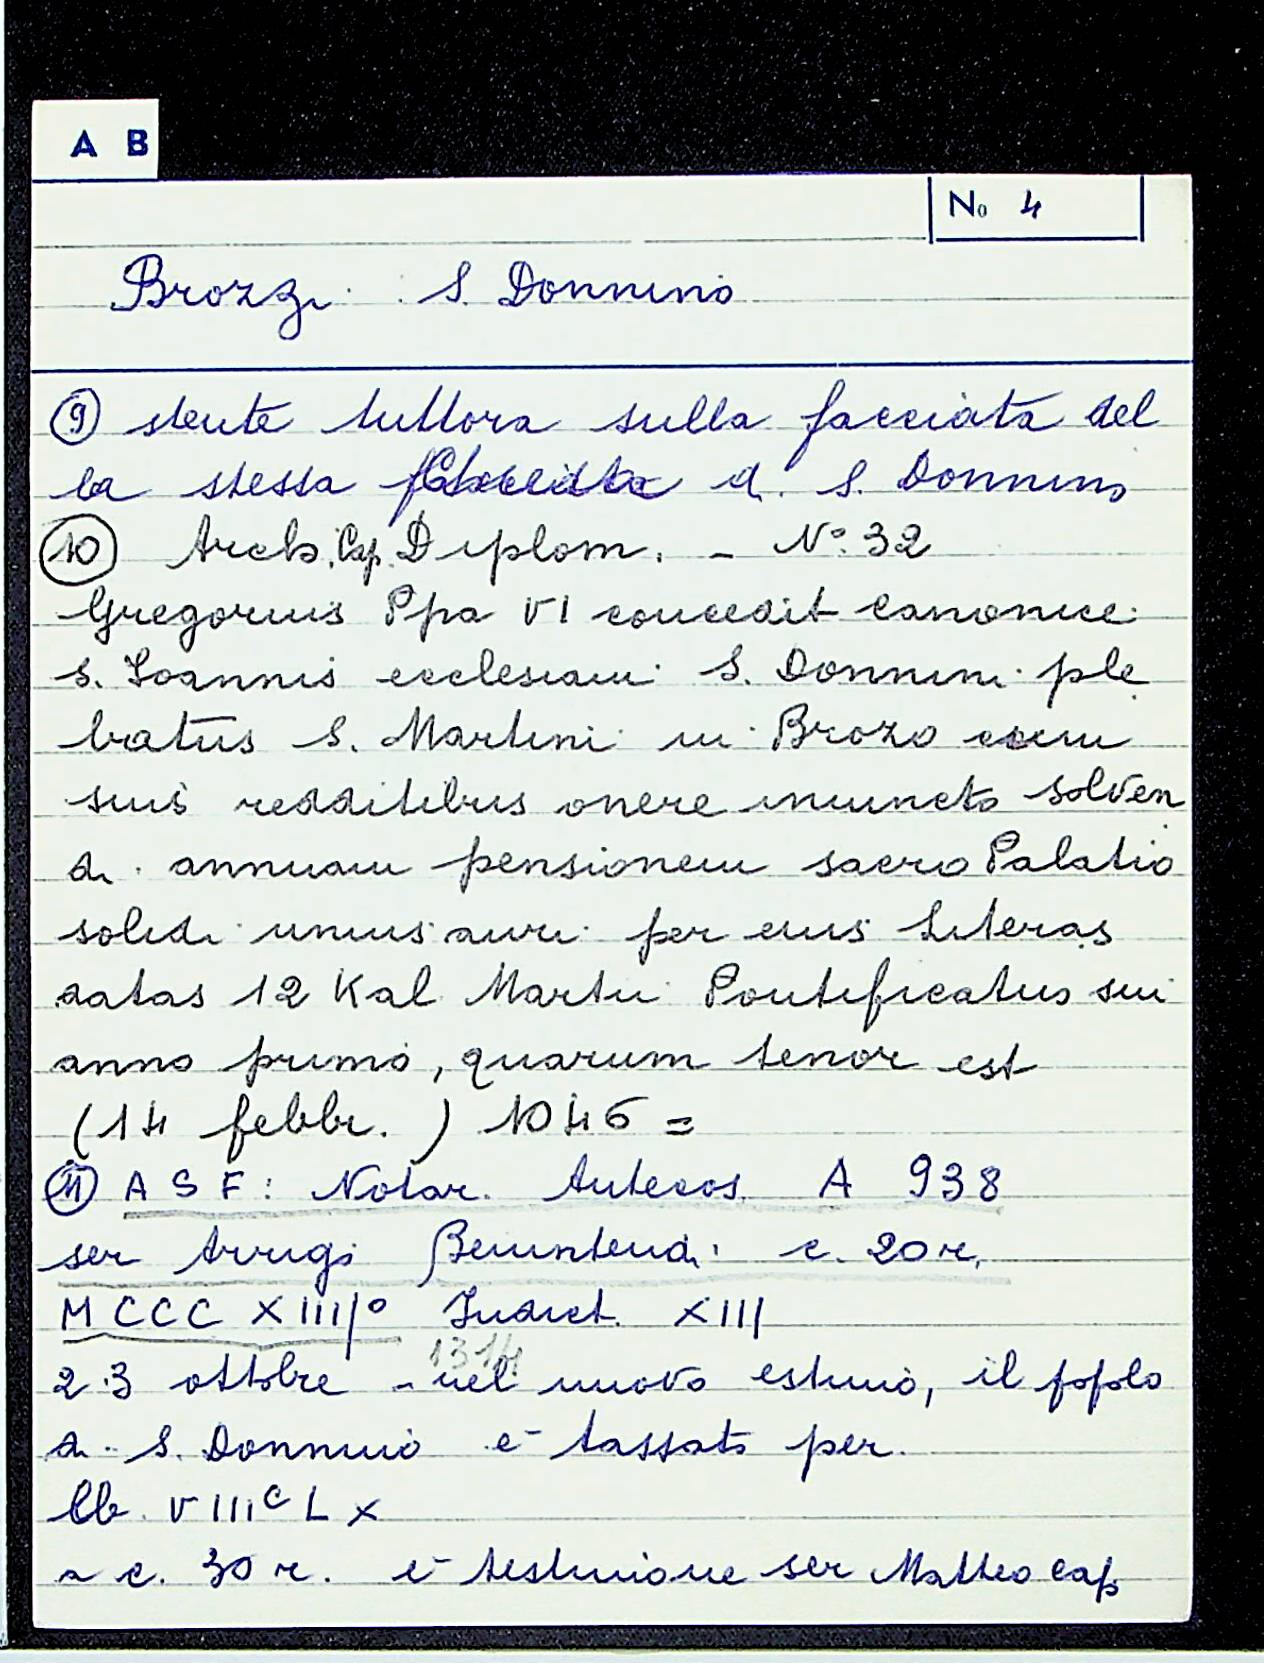 A B
No 4
Brozzi S. Donnino
9 stente tuttora sulla facciata del
la stessa d. S. Donnino
10 Arch. Cap. Diplom. - N° 32
Gregorius Ppa VI concedit canonice
S. Ioannis ecclesiam S. Donnini ple
batus S. Martini in Brozo cum
suis redditibus onere iniuncto solven
di annuam pensionem sacro Palatio
solidi unius auri per eius Literas
datas 12 Kal Martii Pontificatus sui
anno primo, quarum tenor est
(14 febbr.) 1046 =
11 A S F: Notar. Antecos. A 938
ser Arrigi Benintendi c. 20 r.
MCCC XIIII° Indict. XIII
1314
23 ottobre - nel nuovo estimo, il popolo
di S. Donnino è tassato per
lb. VIII c L X
a c. 30 r. è testimone ser Matteo cap